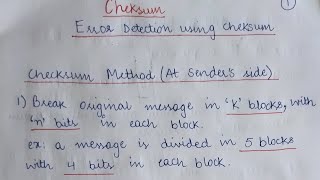 Cheksum
①
Error Detection using cheksum
Checksum Method (At Sender's side)
1) Break original message in 'K' blocks, with
'n' bits in each block.
ex: a message is divided in 5 blocks
with 4 bits in each block.